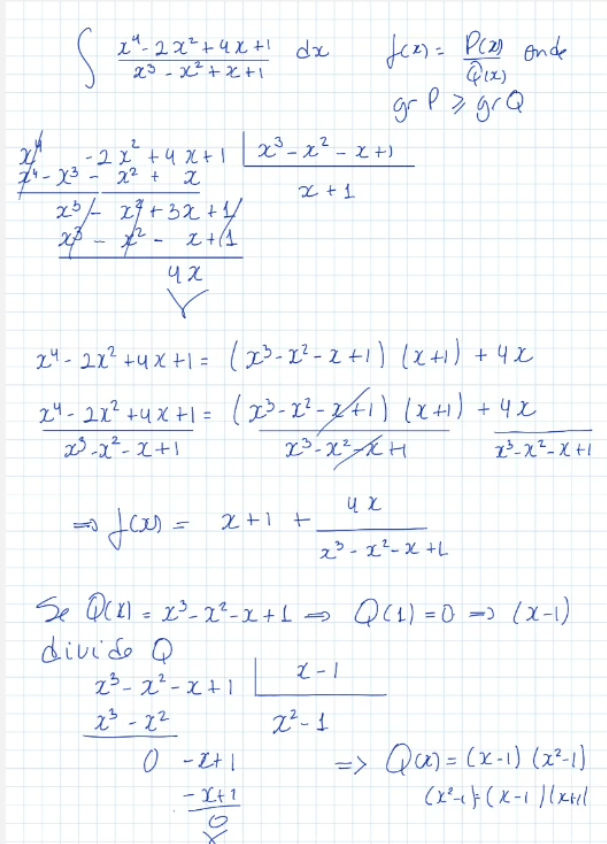 ∫ (x⁴ - 2x² + 4x + 1)/(x³ - x² + x + 1) dx f(x) = P(x)/Q(x) onde
gr P ≥ gr Q
x⁴ - 2x² + 4x + 1 | x³ - x² - x + 1
x⁴ - x³ - x² + x x + 1
x³ - x² + 3x + 1
x³ - x² - x + 1
4x
x⁴ - 2x² + 4x + 1 = (x³ - x² - x + 1) (x + 1) + 4x
(x⁴ - 2x² + 4x + 1)/(x³ - x² - x + 1) = (x³ - x² - x + 1) (x + 1)/(x³ - x² - x + 1) + 4x/(x³ - x² - x + 1)
⇒ f(x) = x + 1 + 4x/(x³ - x² - x + 1)
Se Q(x) = x³ - x² - x + 1 ⇒ Q(1) = 0 ⇒ (x - 1)
divide Q
x³ - x² - x + 1 | x - 1
x³ - x² x² - 1
0 - x + 1 ⇒ Q(x) = (x - 1) (x² - 1)
- x + 1 (x² - 1) = (x - 1)(x + 1)
0